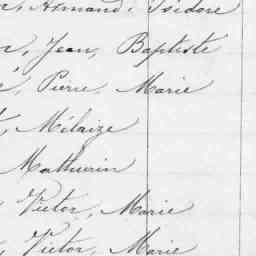 , Armand, Isidore
, Jean, Baptiste
, Pierre, Marie
, Mélaize
Mathurin
, Victor, Marie
, Victor, Marie